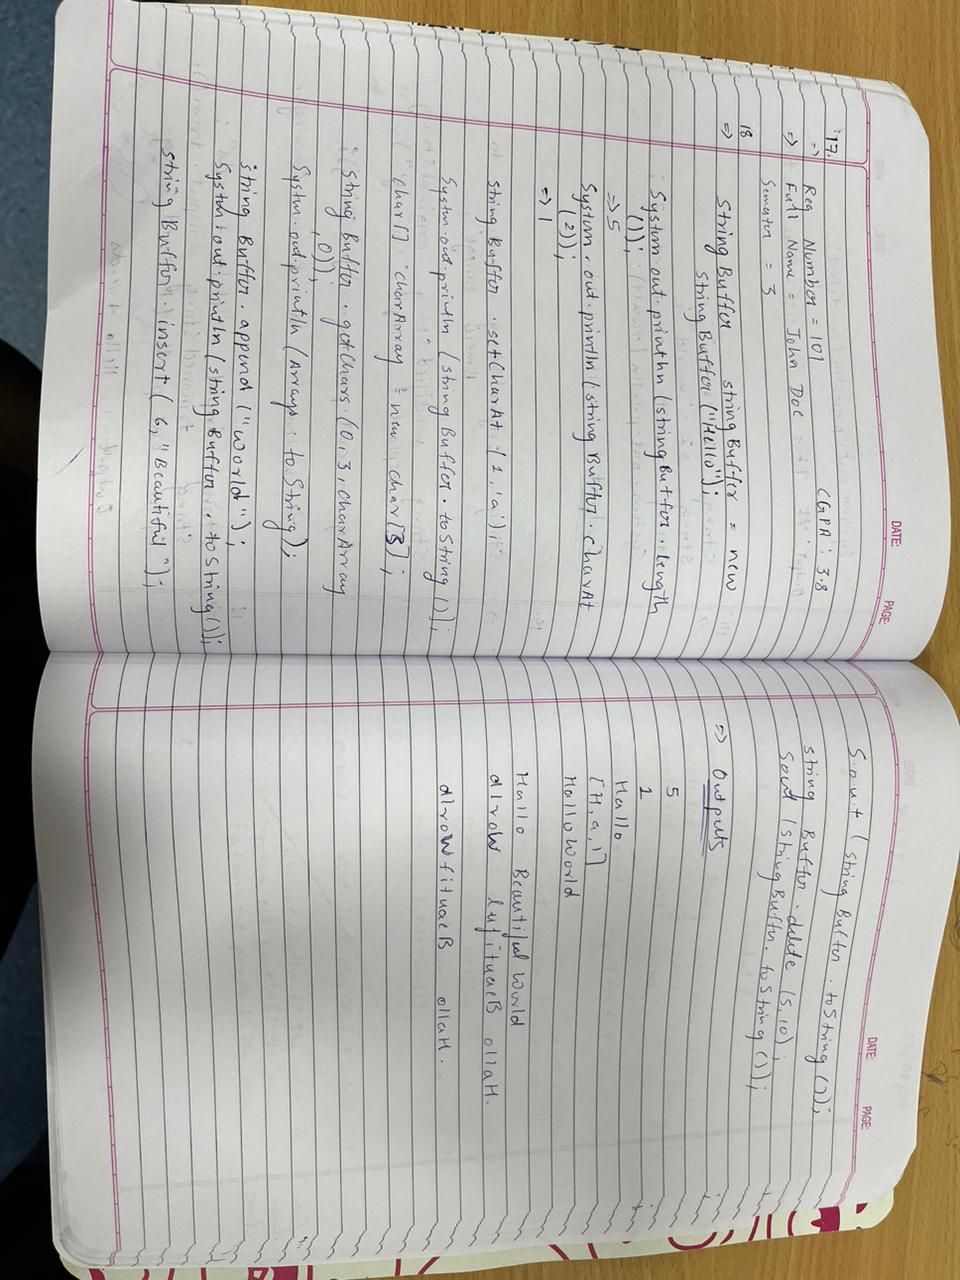 DATE: PAGE:
17.
=> Reg Number = 101 CGPA : 3.8
=> Full Name = John Doe
Semster = 3
18
=> String Buffer string Buffer = new
string Buffer ("Hello");
System.out.println (string Buffer . length
());
=> 5
System.out.println (string Buffer . charAt
(2));
=> 1
string Buffer . setCharAt (1, 'a');
System.out.println (string Buffer . toString ());
char[] charArray = new char[3];
(string Buffer . getChars (0, 3, charArray
, 0));
System.out.println (Arrays : to String);
string Buffer . append ("World");
System.out.println (string Buffer . toString());
string Buffer . insert (6, "Beautiful");
DATE: PAGE:
S.out (string Buffer . toString ());
string Buffer . delete (5, 10);
Sout (string Buffer . to String ());
=> Outputs
5
1
Hallo
[H, a, l]
Hallo World
Hallo Beautiful World
dlroW lufituaeB ollaH.
dlroWfituaeB ollaH.